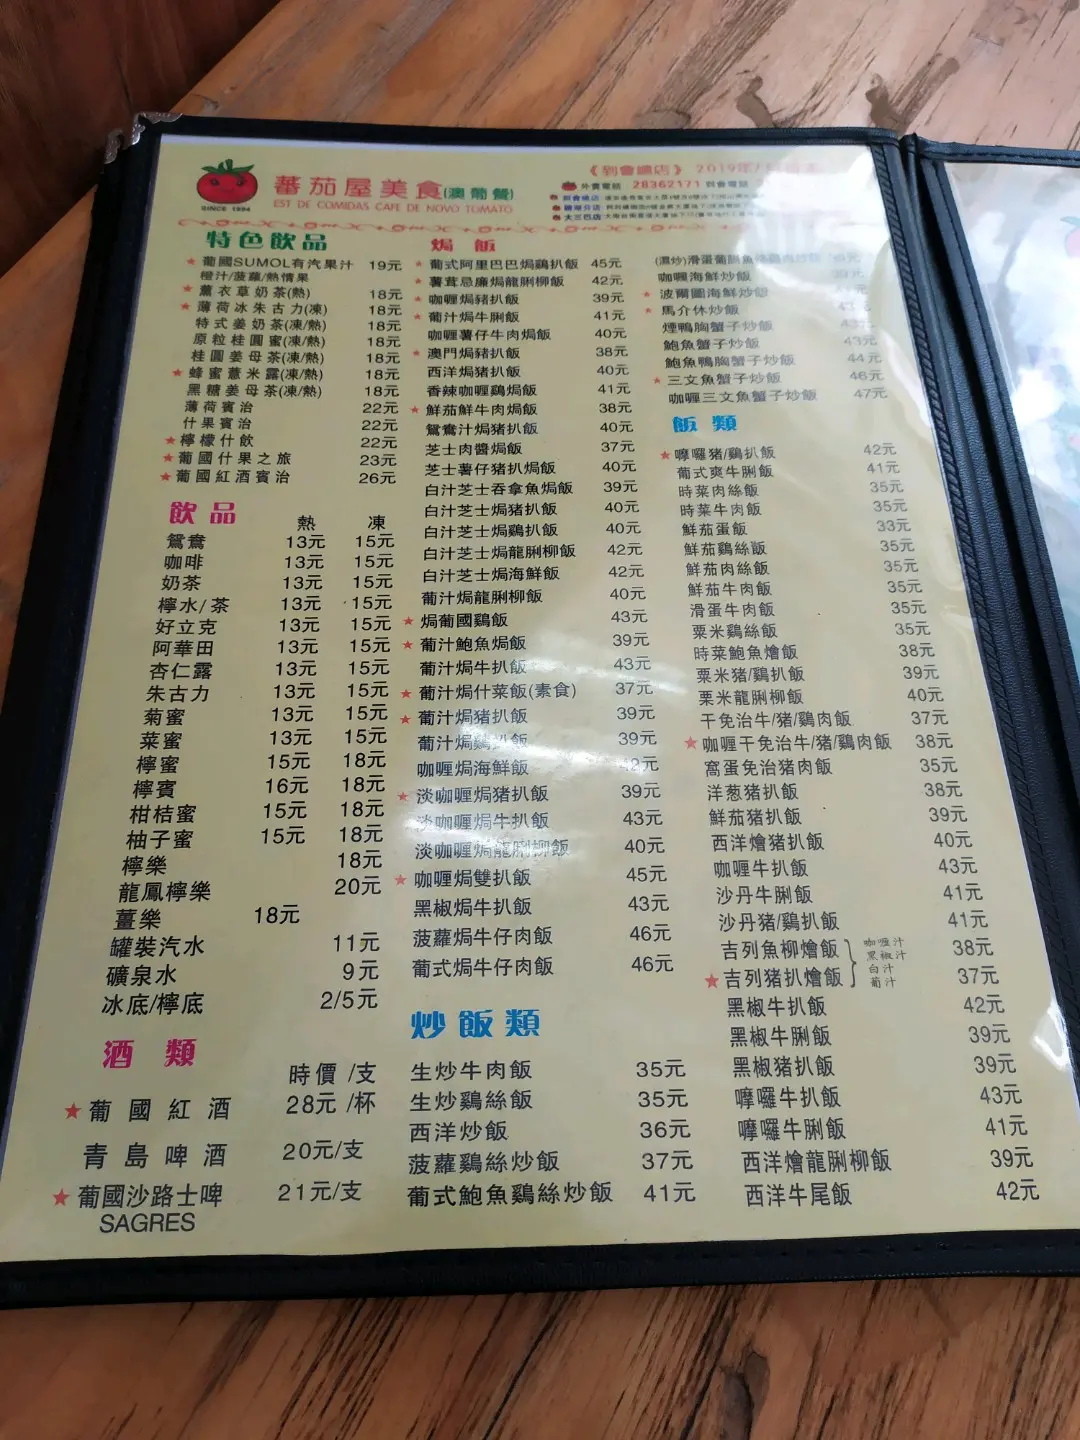 蕃茄屋美食(澳葡餐)
EST DE COMIDAS CAFE DE NOVO TOMATO
SINCE 1994
《到會總店》 2019年
外賣電話 28362171 到會電話
特色飲品
★葡國SUMOL有汽果汁 19元
橙汁/菠蘿/熱情果
★薰衣草奶茶(熱) 18元
★薄荷冰朱古力(凍) 18元
特式姜奶茶(凍/熱) 18元
原粒桂圓蜜(凍/熱) 18元
桂圓姜母茶(凍/熱) 18元
★蜂蜜薏米露(凍/熱) 18元
黑糖姜母茶(凍/熱) 18元
薄荷賓治 22元
什果賓治 22元
★檸檬什飲 22元
★葡國什果之旅 23元
★葡國紅酒賓治 26元
飲品 熱 凍
鴛鴦 13元 15元
咖啡 13元 15元
奶茶 13元 15元
檸水/茶 13元 15元
好立克 13元 15元
阿華田 13元 15元
杏仁露 13元 15元
朱古力 13元 15元
菊蜜 13元 15元
菜蜜 13元 15元
檸蜜 15元 18元
檸賓 16元 18元
柑桔蜜 15元 18元
柚子蜜 15元 18元
檸樂 18元
龍鳳檸樂 20元
薑樂 18元
罐裝汽水 11元
礦泉水 9元
冰底/檸底 2/5元
酒類
時價 /支
★葡國紅酒 28元 /杯
青島啤酒 20元/支
★葡國沙路士啤 21元/支
SAGRES
焗飯
★葡式阿里巴巴焗鷄扒飯 45元
★薯茸忌廉焗龍脷柳飯 42元
★咖喱焗豬扒飯 39元
★葡汁焗牛脷飯 41元
咖喱薯仔牛肉焗飯 40元
★澳門焗豬扒飯 38元
西洋焗豬扒飯 40元
香辣咖喱鷄焗飯 41元
★鮮茄鮮牛肉焗飯 38元
鴛鴦汁焗豬扒飯 40元
芝士肉醬焗飯 37元
芝士薯仔豬扒焗飯 40元
白汁芝士吞拿魚焗飯 39元
白汁芝士焗豬扒飯 40元
白汁芝士焗鷄扒飯 40元
白汁芝士焗龍脷柳飯 42元
白汁芝士焗海鮮飯 42元
葡汁焗龍脷柳飯 40元
★焗葡國鷄飯 43元
★葡汁鮑魚焗飯 39元
葡汁焗牛扒飯 43元
★葡汁焗什菜飯(素食) 37元
★葡汁焗猪扒飯 39元
葡汁焗鷄扒飯 39元
咖喱焗海鮮飯 42元
★淡咖喱焗猪扒飯 39元
淡咖喱焗牛扒飯 43元
淡咖喱焗龍脷柳飯 40元
★咖喱焗雙扒飯 45元
黑椒焗牛扒飯 43元
菠蘿焗牛仔肉飯 46元
葡式焗牛仔肉飯 46元
炒飯類
生炒牛肉飯 35元
生炒鷄絲飯 35元
西洋炒飯 36元
菠蘿鷄絲炒飯 37元
葡式鮑魚鷄絲炒飯 41元
咖喱海鮮炒飯
★波爾圖海鮮炒飯
★馬介休炒飯
煙鴨胸蟹子炒飯
鮑魚蟹子炒飯 43元
鮑魚鴨胸蟹子炒飯 44元
★三文魚蟹子炒飯 46元
咖喱三文魚蟹子炒飯 47元
飯類
★嚤囉猪/鷄扒飯 42元
葡式爽牛脷飯 41元
時菜肉絲飯 35元
時菜牛肉飯 35元
鮮茄蛋飯 33元
鮮茄鷄絲飯 35元
鮮茄肉絲飯 35元
鮮茄牛肉飯 35元
滑蛋牛肉飯 35元
粟米鷄絲飯 35元
時菜鮑魚燴飯 38元
粟米猪/鷄扒飯 39元
粟米龍脷柳飯 40元
干免治牛/猪/鷄肉飯 37元
★咖喱干免治牛/猪/鷄肉飯 38元
窩蛋免治猪肉飯 35元
洋葱猪扒飯 38元
鮮茄猪扒飯 39元
西洋燴猪扒飯 40元
咖喱牛扒飯 43元
沙丹牛脷飯 41元
沙丹猪/鷄扒飯 41元
吉列魚柳燴飯 38元
★吉列猪扒燴飯 37元
咖喱汁
黑椒汁
白汁
葡汁
黑椒牛扒飯 42元
黑椒牛脷飯 39元
黑椒猪扒飯 39元
嚤囉牛扒飯 43元
嚤囉牛脷飯 41元
西洋燴龍脷柳飯 39元
西洋牛尾飯 42元